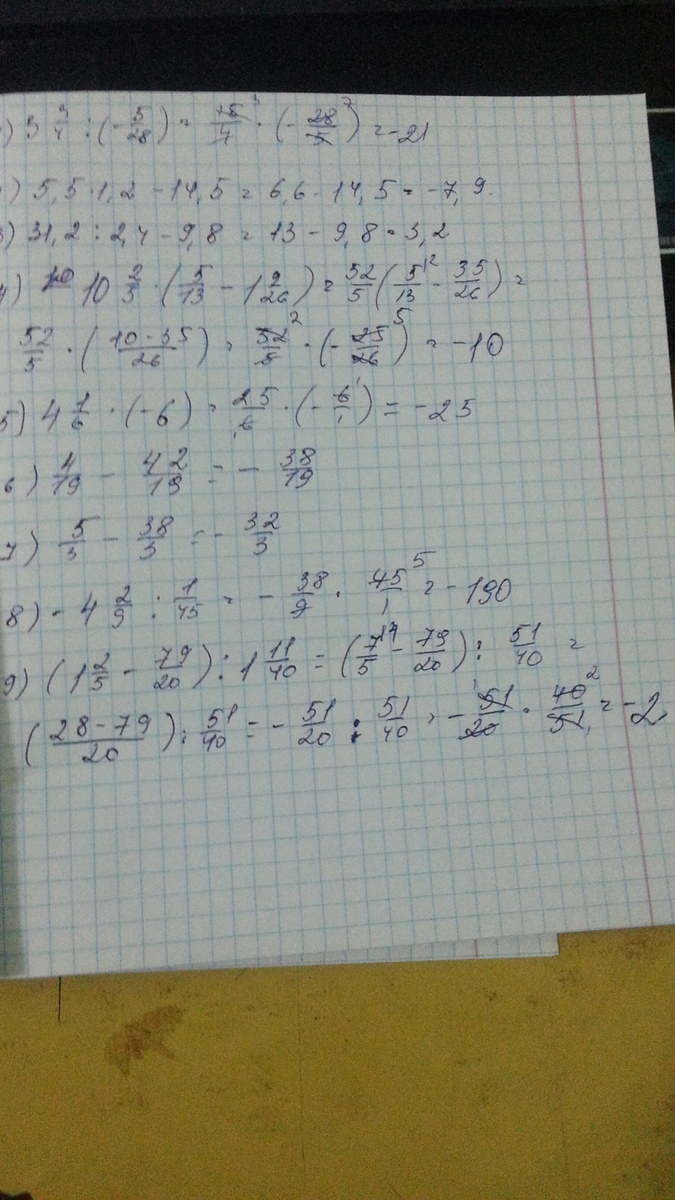 ) 3 3/4 : (- 5/28) = 15/4 · (- 28/5) = -21
) 5,5 · 1,2 - 14,5 = 6,6 - 14,5 = -7,9.
3) 31,2 : 2,4 - 9,8 = 13 - 9,8 = 3,2
4) 10 2/5 · (5/13 - 1 9/26) = 52/5 (5/13 - 35/26) =
52/5 · (10 - 35/26) = 52/5 · (- 25/26) = -10
5) 4 1/6 · (-6) = 25/6 · (- 6/1) = -25
6) 4/19 - 42/19 = - 38/19
7) 5/3 - 38/3 = - 32/3
8) - 4 2/9 : 1/45 = - 38/9 · 45/1 = -190
9) (1 2/5 - 79/20) : 1 11/40 = (7/5 - 79/20) : 51/40 =
(28 - 79/20) : 51/40 = - 51/20 : 51/40 = - 51/20 · 40/51 = -2